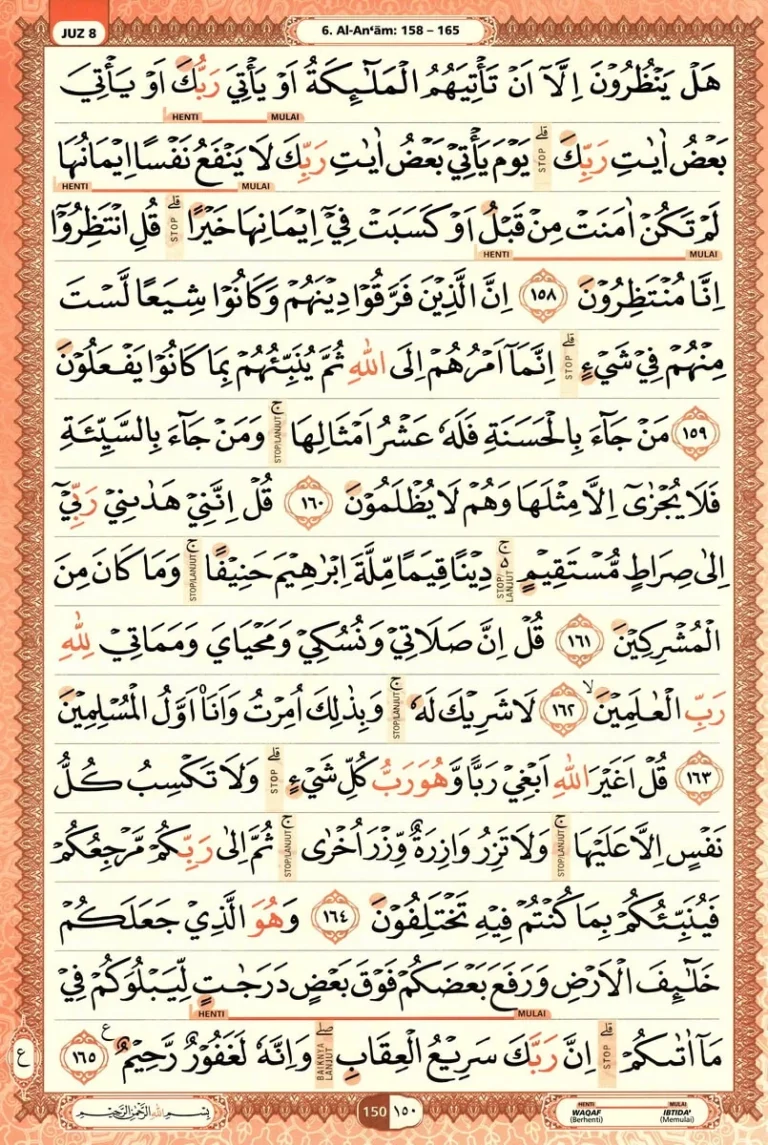 JUZ 8
6. Al-An‘ām: 158 – 165
هَلْ يَنْظُرُوْنَ اِلَّآ اَنْ تَأْتِيَهُمُ الْمَلٰۤىِٕكَةُ اَوْ يَأْتِيَ رَبُّكَ اَوْ يَأْتِيَ
HENTI MULAI
بَعْضُ اٰيٰتِ رَبِّكَ ۗ STOP يَوْمَ يَأْتِيْ بَعْضُ اٰيٰتِ رَبِّكَ لَا يَنْفَعُ نَفْسًا اِيْمَانُهَا
HENTI MULAI
لَمْ تَكُنْ اٰمَنَتْ مِنْ قَبْلُ اَوْ كَسَبَتْ فِيْٓ اِيْمَانِهَا خَيْرًا ۗ STOP قُلِ انْتَظِرُوْٓا
HENTI MULAI
اِنَّا مُنْتَظِرُوْنَ ١٥٨ اِنَّ الَّذِيْنَ فَرَّقُوْا دِيْنَهُمْ وَكَانُوْا شِيَعًا لَّسْتَ
مِنْهُمْ فِيْ شَيْءٍ ۗ STOP اِنَّمَآ اَمْرُهُمْ اِلَى اللّٰهِ ثُمَّ يُنَبِّئُهُمْ بِمَا كَانُوْا يَفْعَلُوْنَ
١٥٩ مَنْ جَاۤءَ بِالْحَسَنَةِ فَلَهٗ عَشْرُ اَمْثَالِهَا ۚ STOP/LANJUT وَمَنْ جَاۤءَ بِالسَّيِّئَةِ
فَلَا يُجْزٰٓى اِلَّا مِثْلَهَا وَهُمْ لَا يُظْلَمُوْنَ ١٦٠ قُلْ اِنَّنِيْ هَدٰىنِيْ رَبِّيْٓ
اِلٰى صِرَاطٍ مُّسْتَقِيْمٍ ۚ STOP/LANJUT دِيْنًا قِيَمًا مِّلَّةَ اِبْرٰهِيْمَ حَنِيْفًا ۚ STOP/LANJUT وَمَا كَانَ مِنَ
الْمُشْرِكِيْنَ ١٦١ قُلْ اِنَّ صَلَاتِيْ وَنُسُكِيْ وَمَحْيَايَ وَمَمَاتِيْ لِلّٰهِ
رَبِّ الْعٰلَمِيْنَ ۙ ١٦٢ لَا شَرِيْكَ لَهٗ ۚ STOP/LANJUT وَبِذٰلِكَ اُمِرْتُ وَاَنَا۠ اَوَّلُ الْمُسْلِمِيْنَ
١٦٣ قُلْ اَغَيْرَ اللّٰهِ اَبْغِيْ رَبًّا وَّهُوَ رَبُّ كُلِّ شَيْءٍ ۗ STOP وَلَا تَكْسِبُ كُلُّ
نَفْسٍ اِلَّا عَلَيْهَا ۚ STOP/LANJUT وَلَا تَزِرُ وَازِرَةٌ وِّزْرَ اُخْرٰى ۚ STOP/LANJUT ثُمَّ اِلٰى رَبِّكُمْ مَّرْجِعُكُمْ
فَيُنَبِّئُكُمْ بِمَا كُنْتُمْ فِيْهِ تَخْتَلِفُوْنَ ١٦٤ وَهُوَ الَّذِيْ جَعَلَكُمْ
خَلٰۤىِٕفَ الْاَرْضِ وَرَفَعَ بَعْضَكُمْ فَوْقَ بَعْضٍ دَرَجٰتٍ لِّيَبْلُوَكُمْ فِيْ
HENTI MULAI
مَآ اٰتٰىكُمْ ۗ STOP اِنَّ رَبَّكَ سَرِيْعُ الْعِقَابِ ۖ BAIKNYA LANJUT وَاِنَّهٗ لَغَفُوْرٌ رَّحِيْمٌ ࣖ ١٦٥
ع
بِسْمِ اللّٰهِ الرَّحْمٰنِ الرَّحِيْمِ
150 ١٥٠
HENTI MULAI
WAQAF IBTIDA'
(Berhenti) (Memulai)